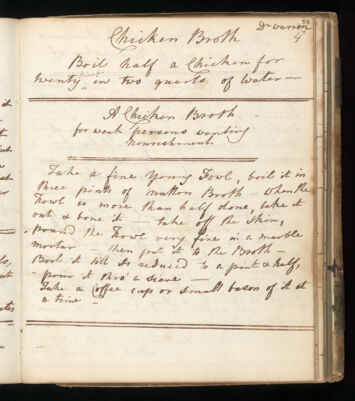 Dr Warren
Chicken Broth
Boil half a Chicken for
twenty in two quarts of Water —
A Chicken Broth
for weak persons wanting
nourishment
Take a fine Young Fowl, boil it in
three pints of Mutton Broth — when the
Fowl is more than half done, take it
out & bone it — take off the Skin,
pound the Fowl very fine in a marble
mortar — then put it to the Broth —
Boil it till its reduced to a pint & half,
— pour it thro' a sieve —
Take a Coffee cup or small bason of it at
a time —